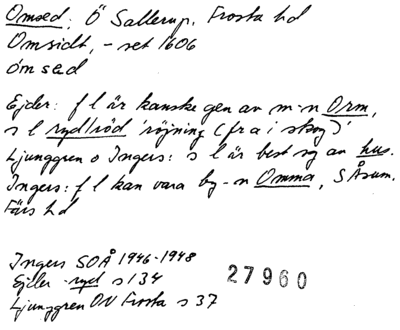 Omsed: Ö Sallerup. Frosta hd
Omsidt, -set 1606
ómsæd
Ejder: f l är kanske gen av m·n Orm,
s l ryd/röd 'röjning (fra i skog)'
Ljunggren o Ingers: s l är best sg an hus.
Ingers: f l kan vara by-n Omma, S Åsum.
Färs hd
Ingers SOÅ 1946-1948
Ejder -ryd s 134
Ljunggren ON Frosta s 37
27960